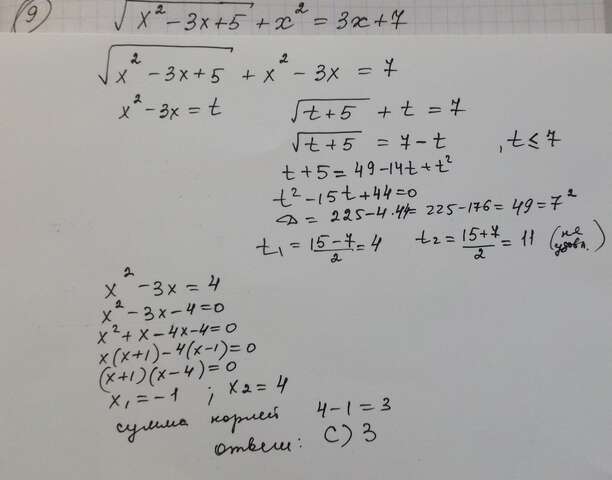 (9) √(x² - 3x + 5) + x² = 3x + 7
√(x² - 3x + 5) + x² - 3x = 7
x² - 3x = t √(t + 5) + t = 7
√(t + 5) = 7 - t , t ≤ 7
t + 5 = 49 - 14t + t²
t² - 15t + 44 = 0
D = 225 - 4·44 = 225 - 176 = 49 = 7²
t₁ = (15 - 7)/2 = 4 t₂ = (15 + 7)/2 = 11 (не удовл.)
x² - 3x = 4
x² - 3x - 4 = 0
x² + x - 4x - 4 = 0
x(x + 1) - 4(x - 1) = 0
(x + 1)(x - 4) = 0
x₁ = -1 ; x₂ = 4
сумма корней 4 - 1 = 3
ответ: C) 3